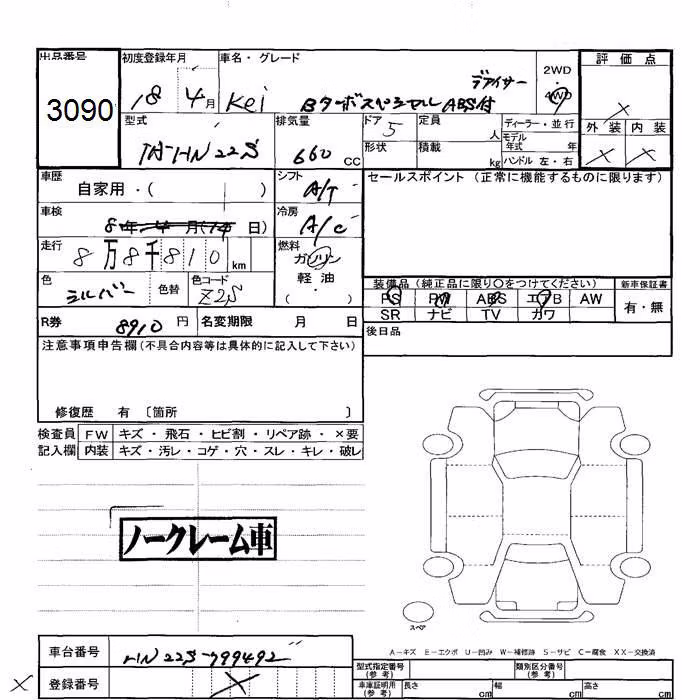 出品番号 初度登録年月 車名・グレード 評価点
3090 18 4月 Kei Bターボスペシャル ABS付 デアイサー 2WD 4WD ×
型式 排気量 ドア 5 定員 人 ディーラー・並行 外装 内装
TA-HN22S 660 CC 形状 積載 kg モデル年式 年 ハンドル 左・右 × ×
車歴 自家用・( ) シフト A/T セールスポイント(正常に機能するものに限ります)
車検 8年4月(14日) 冷房 A/C
走行 8万8千810km 燃料 ガソリン
軽油
・( )
色 シルバー 色替 色コード Z2S
装備品(純正品に限り○をつけてください) 新車保証書
PS PW ABS エアB AW 有・無
SR ナビ TV カワ
R券 8910円 名変期限 月 日 後日品
注意事項申告欄(不具合内容等は具体的に記入して下さい)
修復歴 有 〔箇所 〕
検査員 FW キズ・飛石・ヒビ割・リペア跡・×要
記入欄 内装 キズ・汚レ・コゲ・穴・スレ・キレ・破レ
ノークレーム車
スペア
A-キズ E-エクボ U-凹み W-補修跡 S-サビ C-腐食 XX-交換済
車台番号 HN22S-799492
× 登録番号 ×
型式指定番号(参考) 類別区分番号(参考)
車庫証明用(参考) 長さ cm 幅 cm 高さ cm